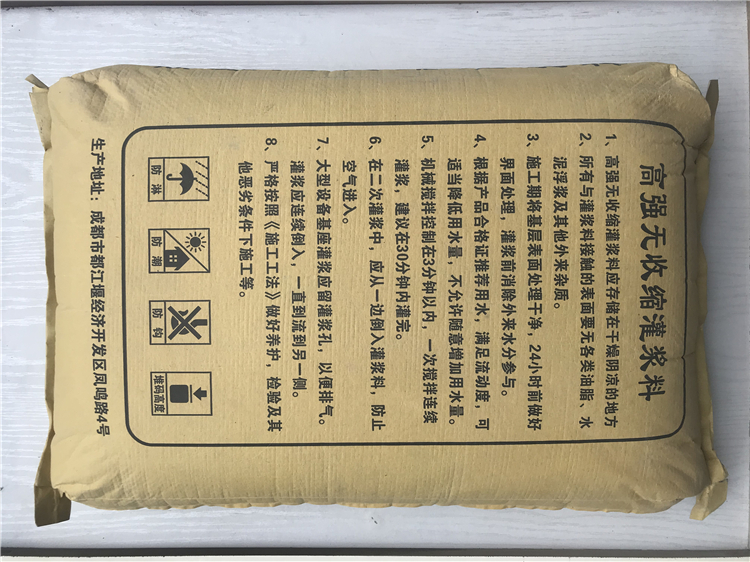 高强无收缩灌浆料
1、高强无收缩灌浆料应存储在干燥阴凉的地方
2、所有与灌浆料接触的表面要无各类油脂、水
泥浮浆及其他外来杂质。
3、施工期将基层表面处理干净，24小时前做好
界面处理，灌浆前消除外来水分参与。
4、根据产品合格证推荐用水，满足流动度，可
适当降低用水量，不允许随意增加用水量。
5、机械搅拌控制在3分钟以内，一次搅拌连续
灌浆，建议在30分钟内灌完。
6、在二次灌浆中，应从一边倒入灌浆料，防止
空气进入。
7、大型设备基座灌浆应留灌浆孔，以便排气。
灌浆应连续倒入，一直到流到另一侧。
8、严格按照《施工工法》做好养护，检验及其
他恶劣条件下施工等。
防淋
防潮
防钩
堆码高度
生产地址：成都市都江堰经济开发区凤鸣路4号